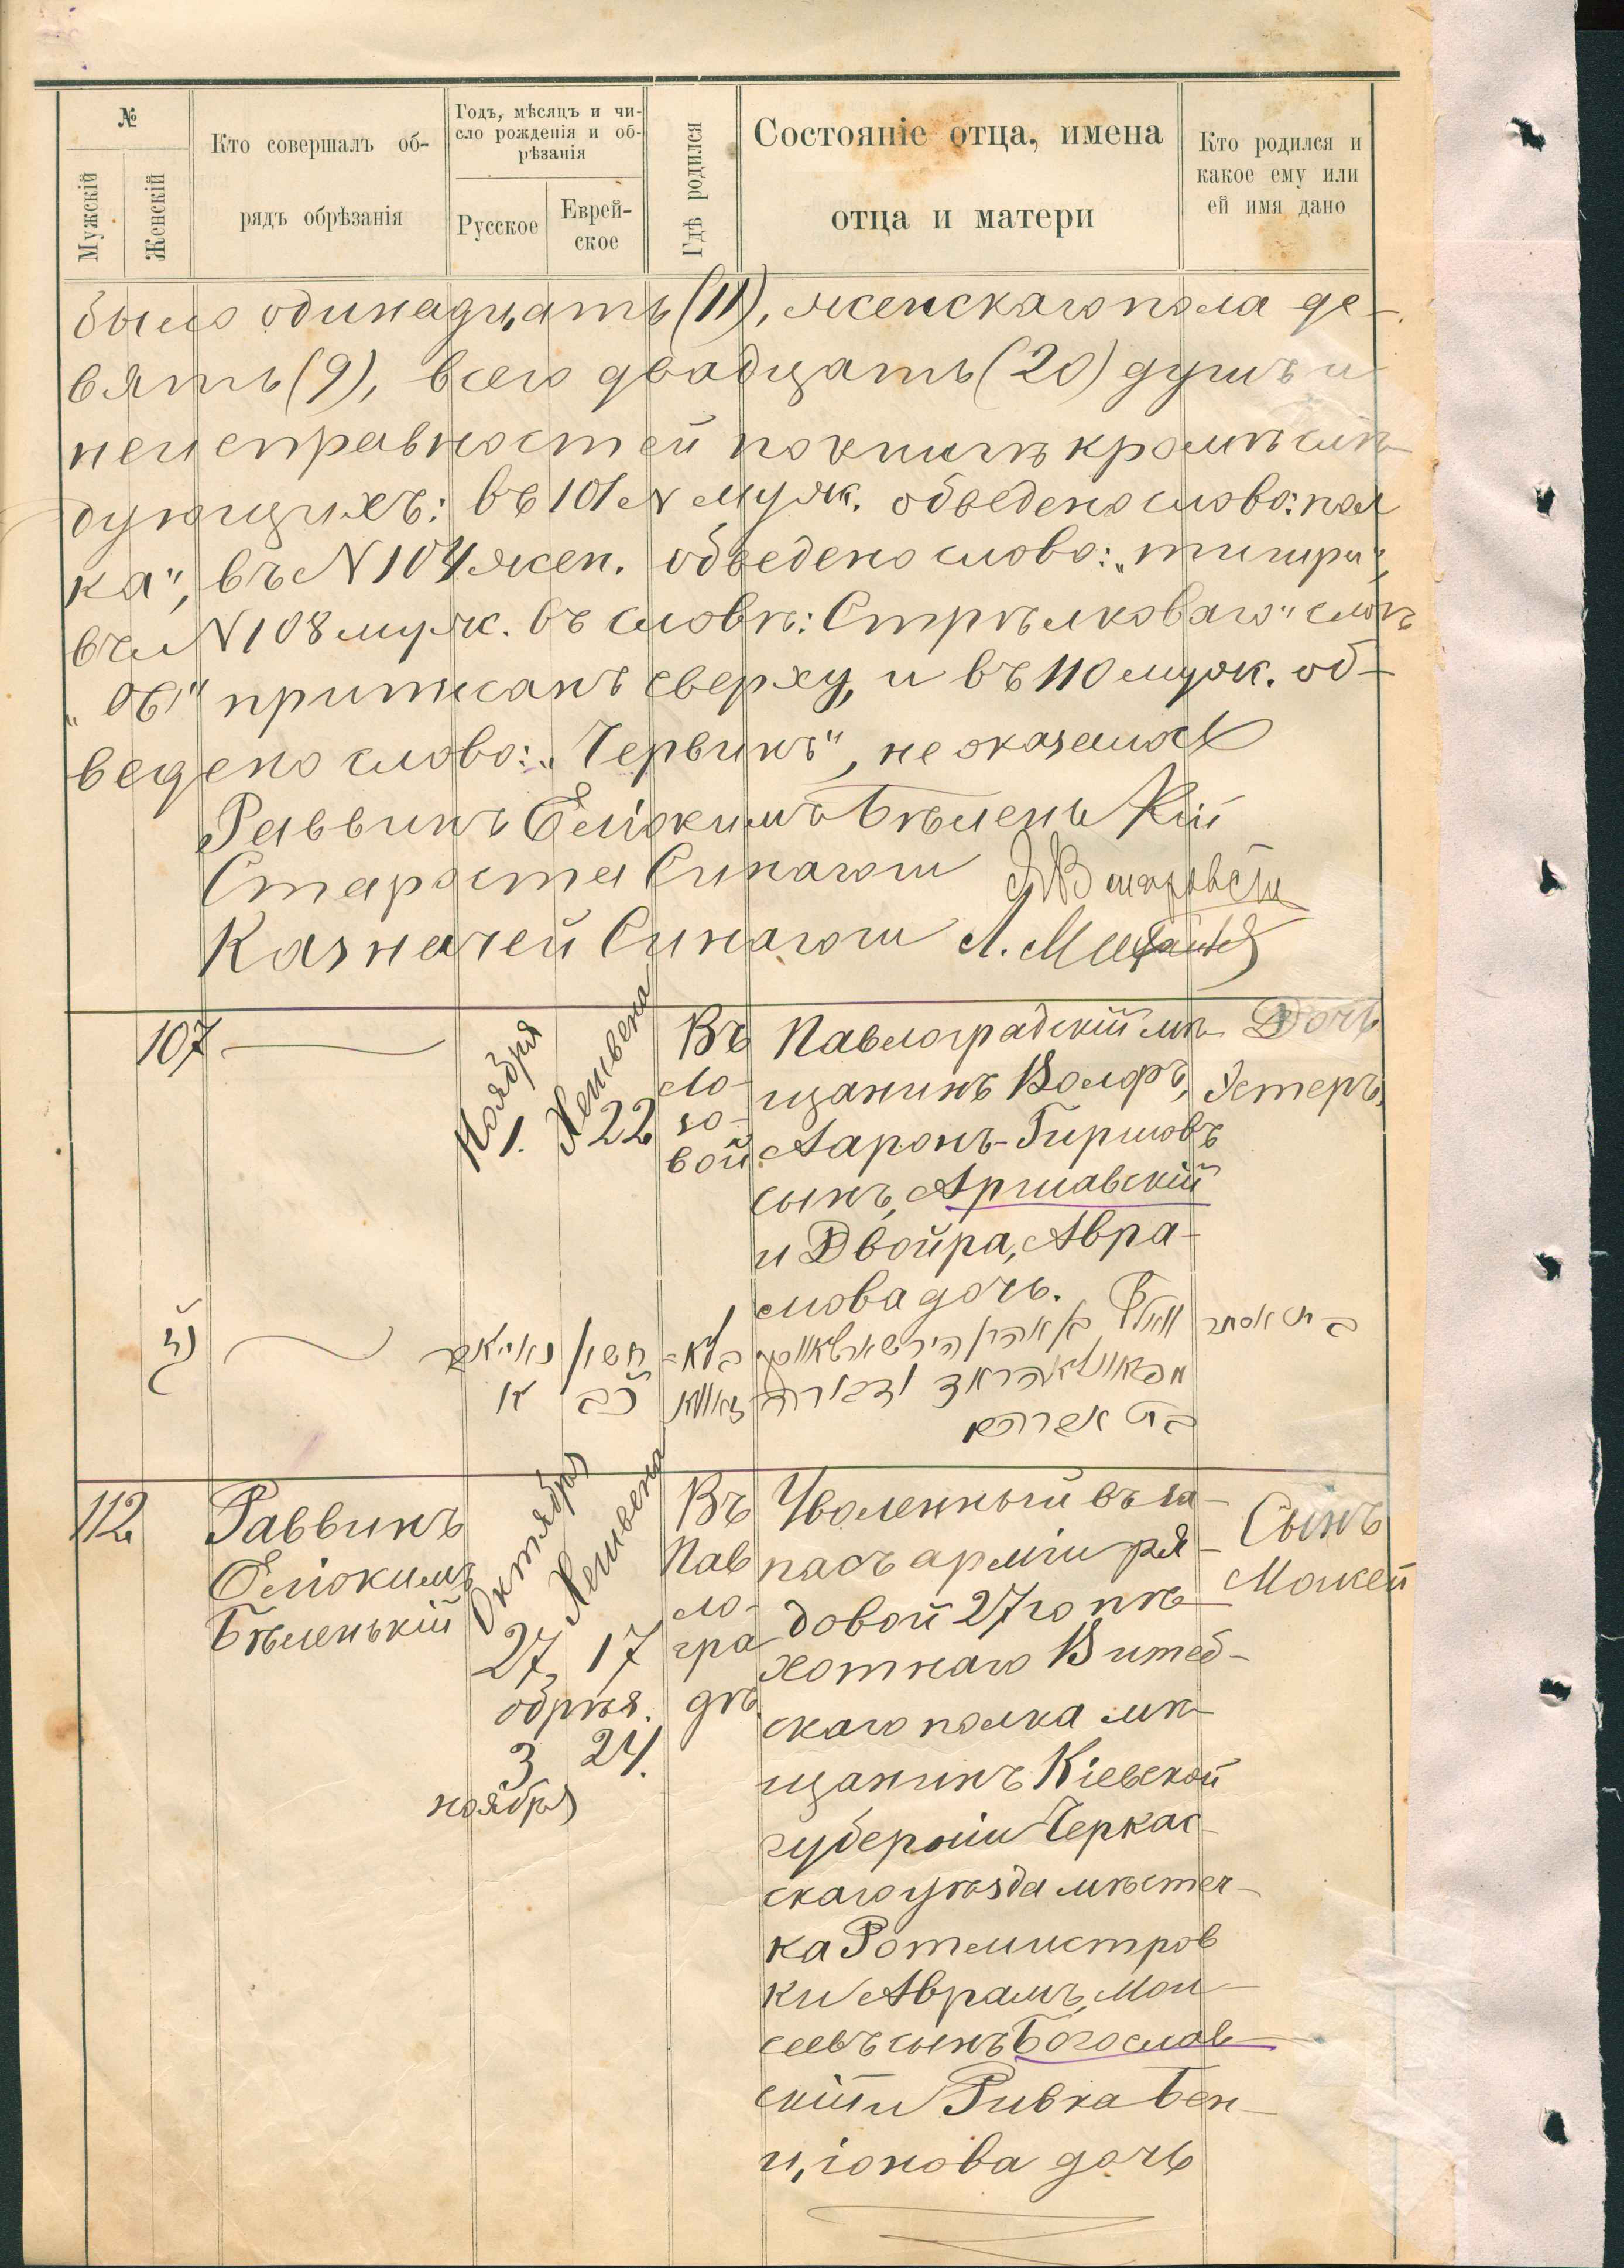 №
Мужскій
Женскій
Кто совершалъ об-
рядъ обрѣзанія
Годъ, мѣсяцъ и чи-
сло рожденія и об-
рѣзанія
Русское
Еврей-
ское
Гдѣ родился
Состояніе отца, имена
отца и матери
Кто родился и
какое ему или
ей имя дано
было одинадцать (11), женскаго пола де-
вять (9), всего двадцать (20) душъ и
неисправностей по книгѣ кромѣ слѣ-
дующихъ: въ 101 № муж. обведено слово: пол
ка", въ № 104 жен. обведено слово:
въ № 108 муж. въ словѣ: Стрѣлковаго" слогъ
"овъ" приписанъ сверху, и въ 110 муж. об-
ведено слово: „Червинъ", не оказалось
Раввинъ Еліокимъ Бѣленькій
Староста Синагоги
Казначей Синагоги Л.
107
Ноября
1.
Хешвена
22
Въ
Ло-
зо-
вой
Павлоградскій мѣ-
щанинъ Волфъ,
Ааронъ-Гиршовъ
сынъ, Аршавскій
и Двойра, Авра-
мова дочь.
Дочь
Эстеръ,
קז
חשון
כב
א
בת אסתר
112
Раввинъ
Еліокимъ
Бѣленькій
Октября
27,
обрѣз.
3
ноября
Хешвена
17
24.
Въ
Пав
ло-
гра
дѣ.
Уволенный въ за-
пасъ арміи ря-
довой 27го пѣ-
хотнаго Витеб-
скаго полка мѣ-
щанинъ Кіевской
губерніи Черкас-
скаго уѣзда мѣстеч-
ка Ротмистров
ки Аврамъ, Мои-
сеевъ сынъ Богослав-
скій и Ривка Бен-
ціонова дочь
Сынъ
Мокей